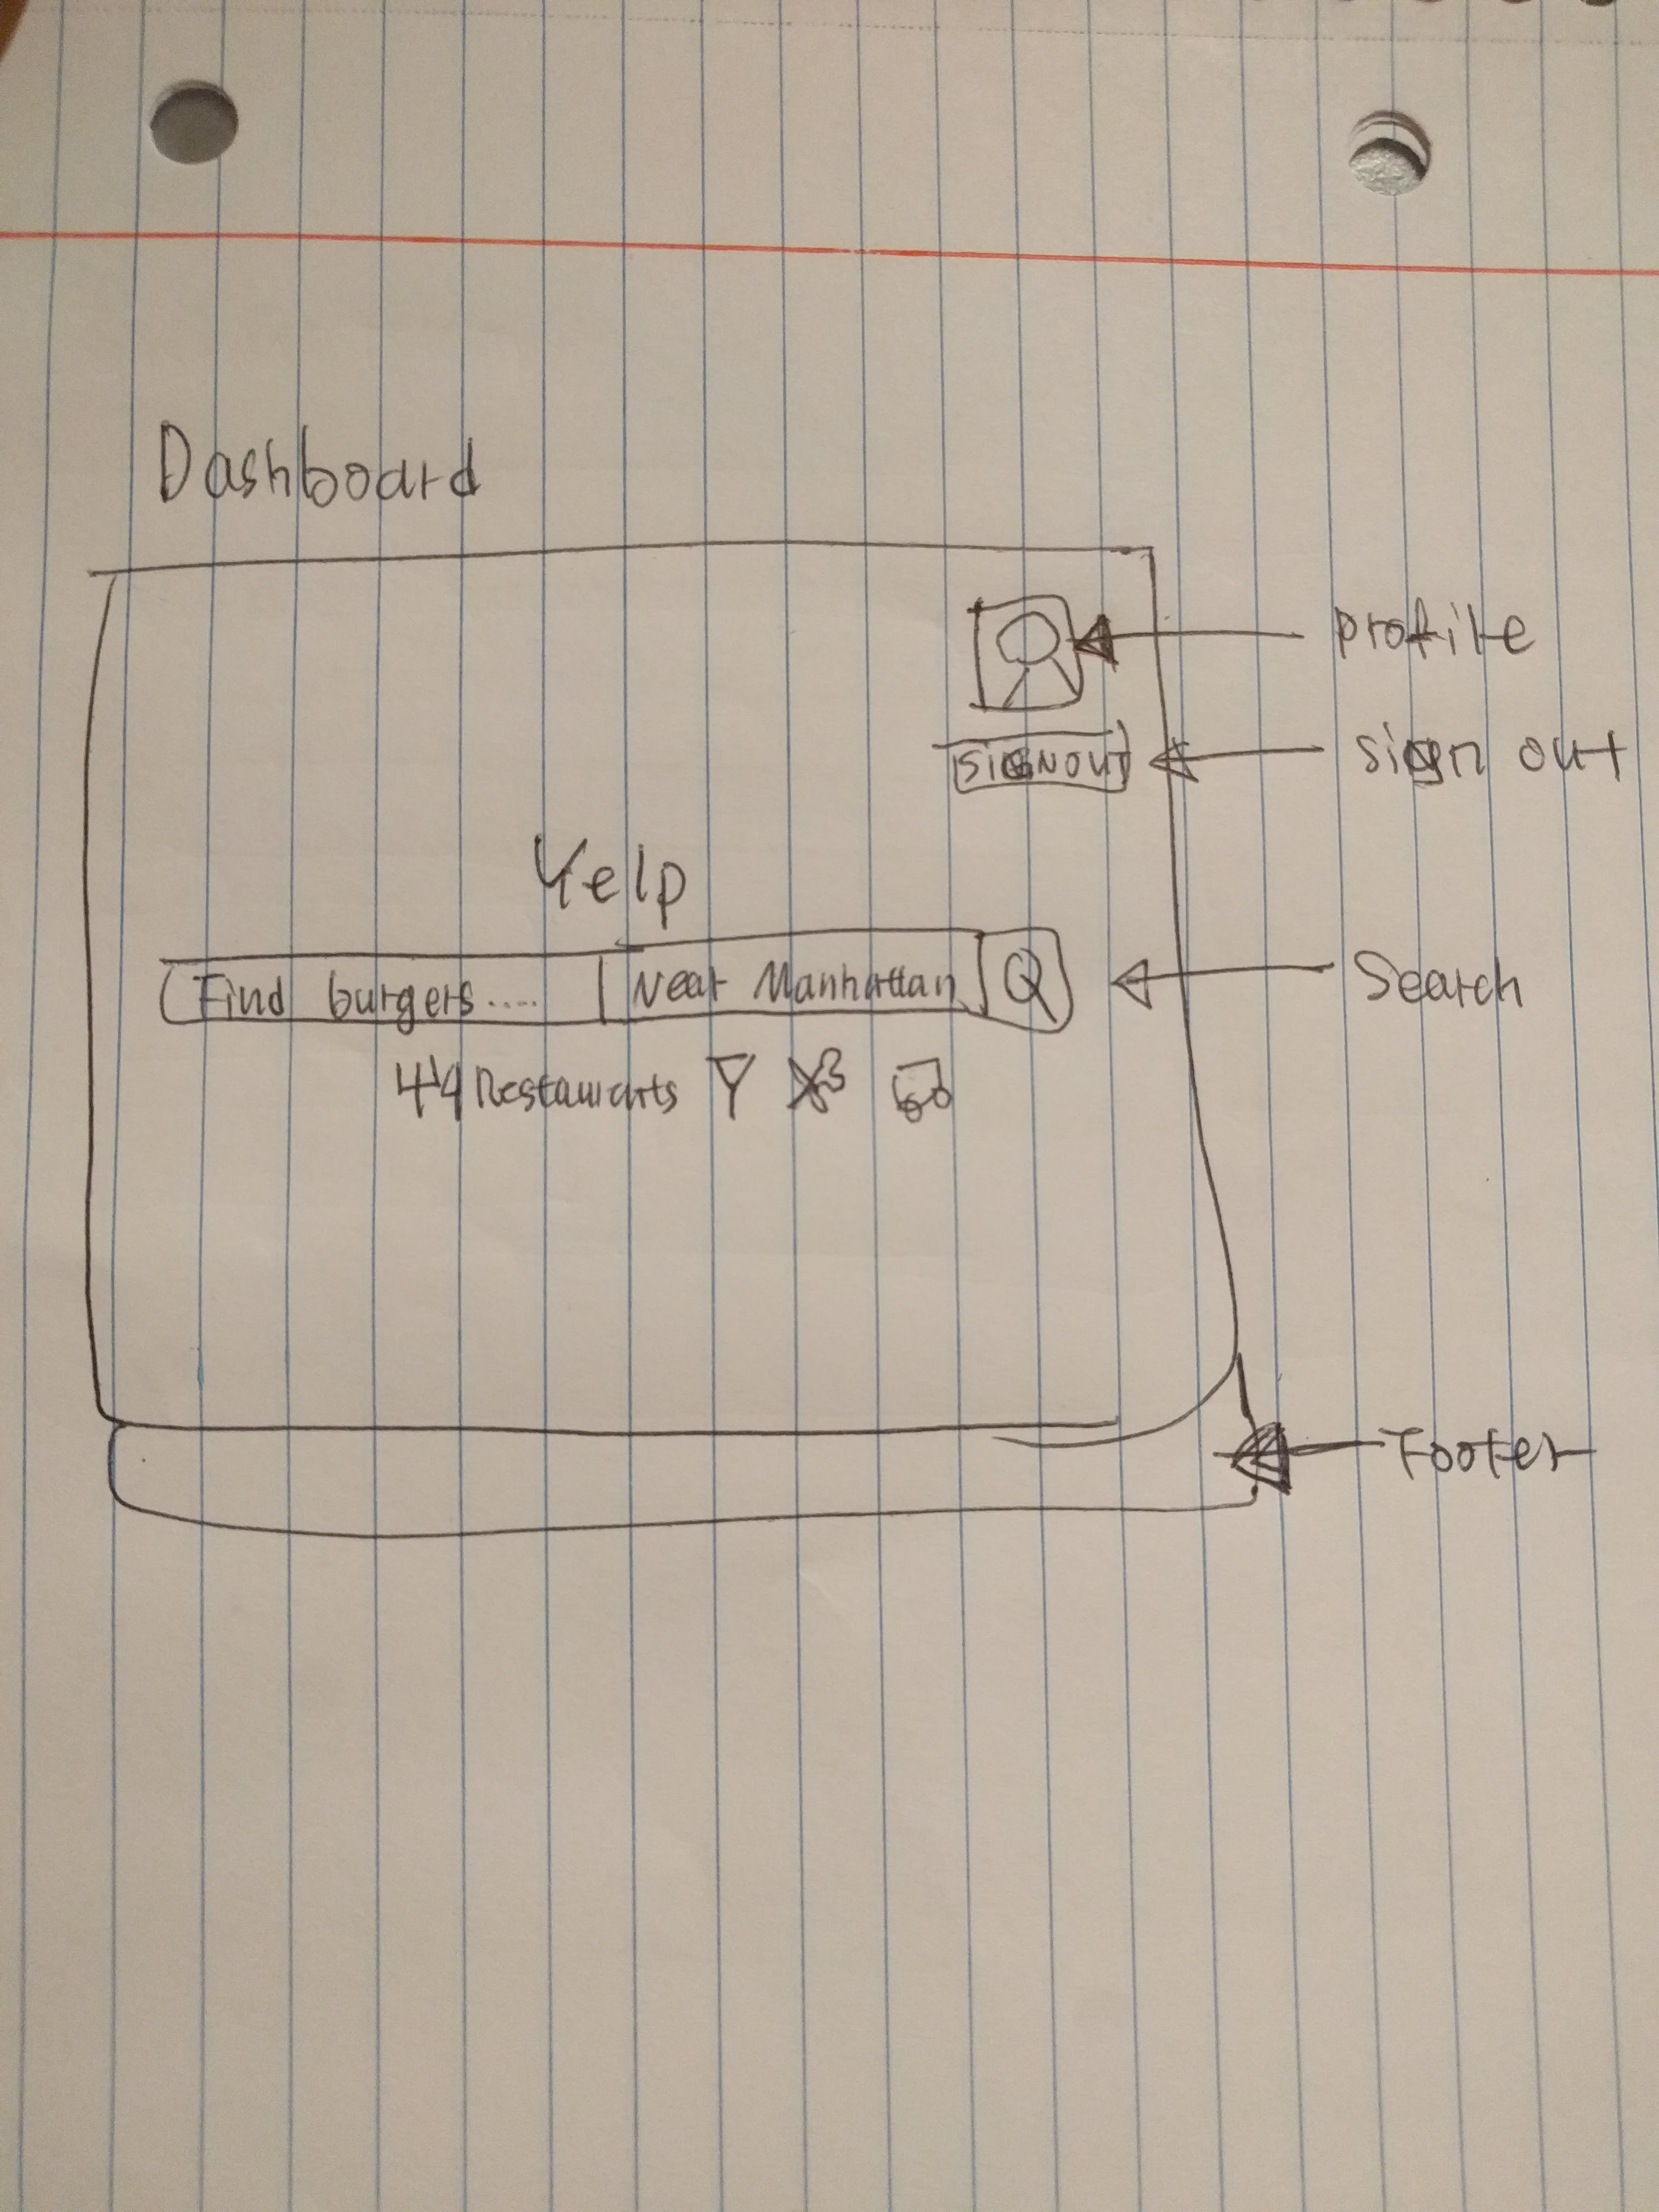 Dashboard
Profile
SIGNOUT
Sign out
Yelp
Find burgers..... Near Manhattan
Search
Restaurants
Footer